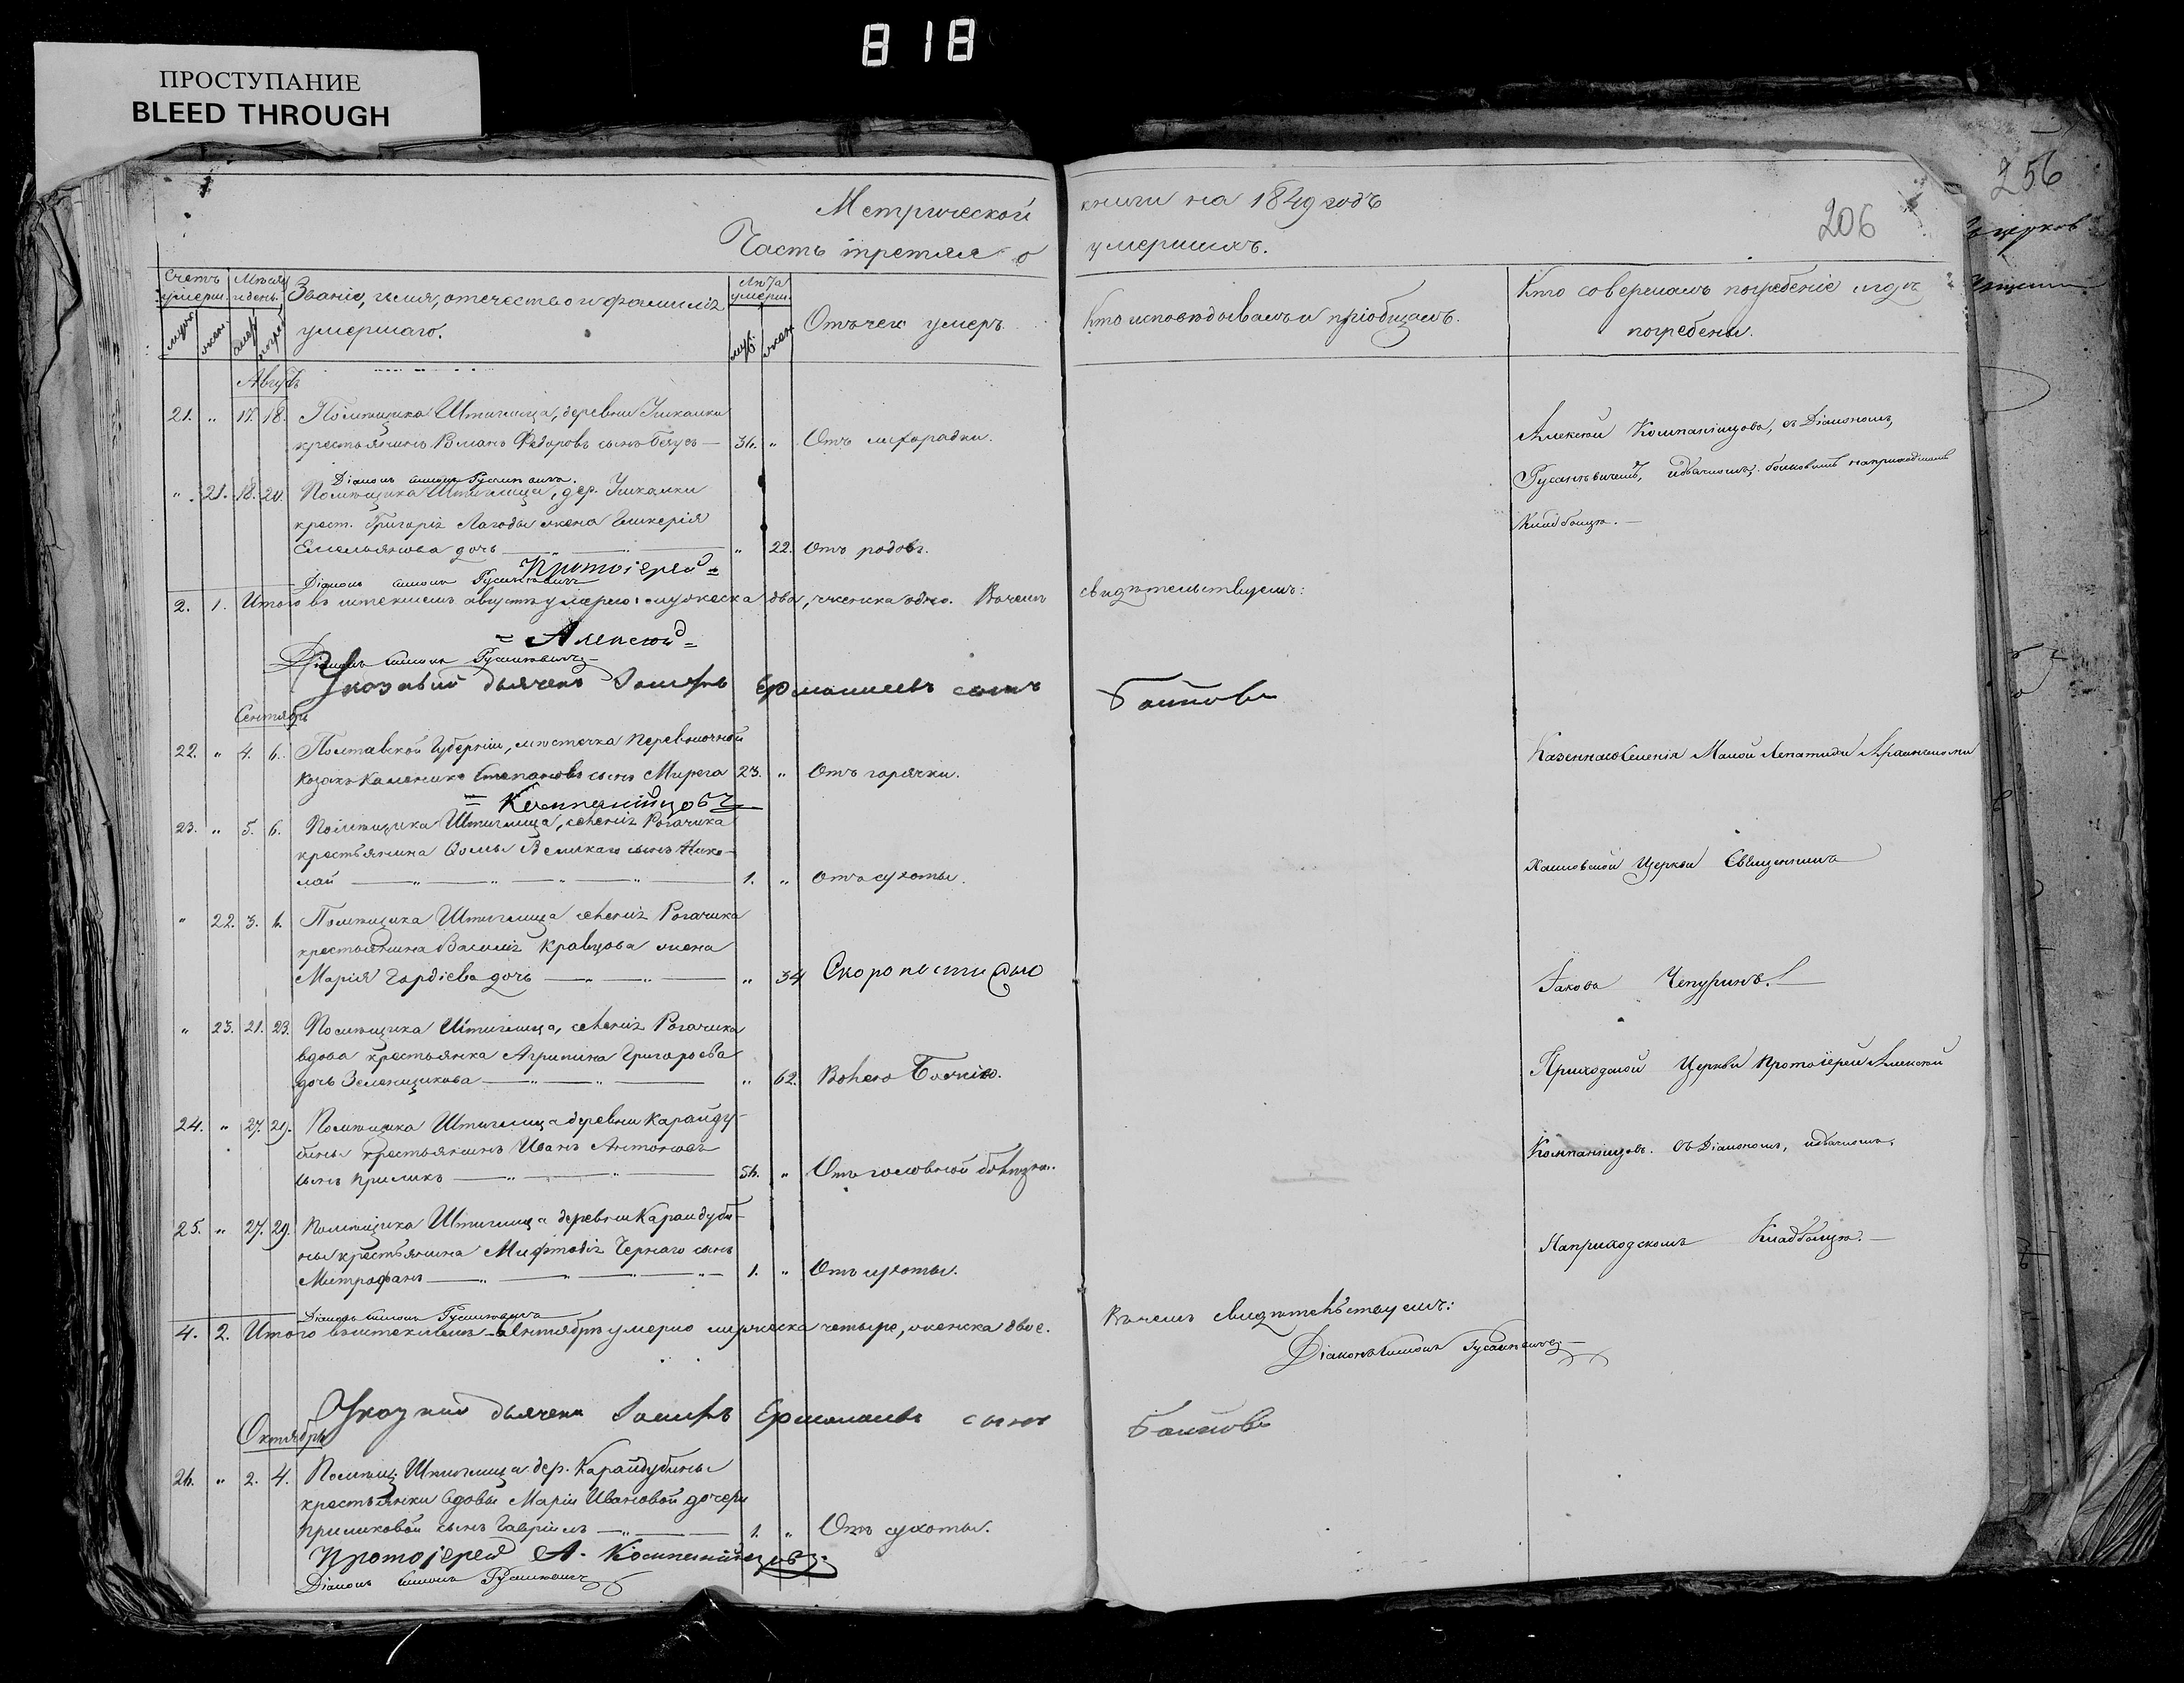 818
ПРОСТУПАНИЕ
BLEED THROUGH
256
206
Метрической книги на 1849 годъ
Часть третяя о умершихъ.
Счетъ умерш. Мѣсяц и день. Званіе, имя, отечество и фамилія умершаго. Лѣта умерш. Отъ чего умеръ. Кто исповѣдывалъ и пріобщалъ. Кто совершалъ погребеніе и гдѣ погребены.
муж. жен. умер. погр. муж. жен.
Августъ
21. " 17. 18. Помѣщика Штиглица, деревни Ушкалки
крестьянинъ Романъ Федоровъ сынъ Беусъ — 36. " Отъ лихорадки.
Алексѣй Компанійцовъ, съ Діакономъ,
Русаневичемъ, на приходскомъ
Кладбищѣ. —
" 21. 18. 20. Помѣщика Штиглица, дер. Ушкалки
крест. Григорія Лагоды жена Гликерія
Емельянова дочь — " — " 22. Отъ родовъ.
Протоіерей =
2. 1. Итого въ истекшемъ августѣ умерло: мужеска два, женска одно. Въ чемъ свидѣтельствуемъ:
= Алексѣй =
Указный дьячекъ Іосифъ Ермолаевъ сынъ
Сентябрь
22. " 4. 6. Полтавской Губерніи, мѣстечка Переволочной
козакъ Каленикъ Степановъ сынъ Мирега 23. " Отъ горячки.
Казеннаго Селенія Малой Лепатихи
= Компанійцовъ
23. " 5. 6. Помѣщика Штиглица, селенія Рогачика
крестьянина Ѳомы Великаго сынъ Нико-
лай — " — " — " — " — 1. " Отъ сухоты.
Церкви Священникъ
" 22. 3. 6. Помѣщика Штиглица селенія Рогачика
крестьянина Василія Кравцова жена
Марія Гордіева дочь — " — " — " 34 Скоропостижно
Іаковъ Чепуринъ.
" 23. 21. 23. Помѣщика Штиглица, селенія Рогачика
вдова крестьянка Агрипина Григорьева
дочь Зеленщикова — " — " — " 62. Болею Бочною.
Приходской Церкви Протоіерей Алексѣй
24. " 27. 29. Помѣщика Штиглица деревни Карайду-
бины крестьянинъ Иванъ Антоновъ
сынъ Приликъ — " — " — 56. " Отъ головной болѣзни.
Компанійцовъ. Съ Діакономъ, и дьячкомъ.
25. " 27. 29. Помѣщика Штиглица деревни Карайдуби-
ны крестьянина Меѳтодія Чернаго сынъ
Митрофанъ — " — " — " — 1. " Отъ сухоты.
На приходскомъ Кладбищѣ. —
4. 2. Итого въ истекшемъ Сентябрѣ умерло мужеска четыре, женска двое. Въ чемъ свидѣтельствуемъ:
Діаконъ Симонъ Русаневичъ
Указный дьячекъ Іосифъ Ермолаевъ сынъ
Октябрь
26. " 2. 4. Помѣщ. Штиглица дер. Карайдубины
крестьянки вдовы Маріи Ивановой дочери
Приликовой сынъ Гавріилъ — " — 1. " Отъ сухоты.
Протоіерей А. Компанійцовъ.
Діаконъ Симонъ Русаневичъ